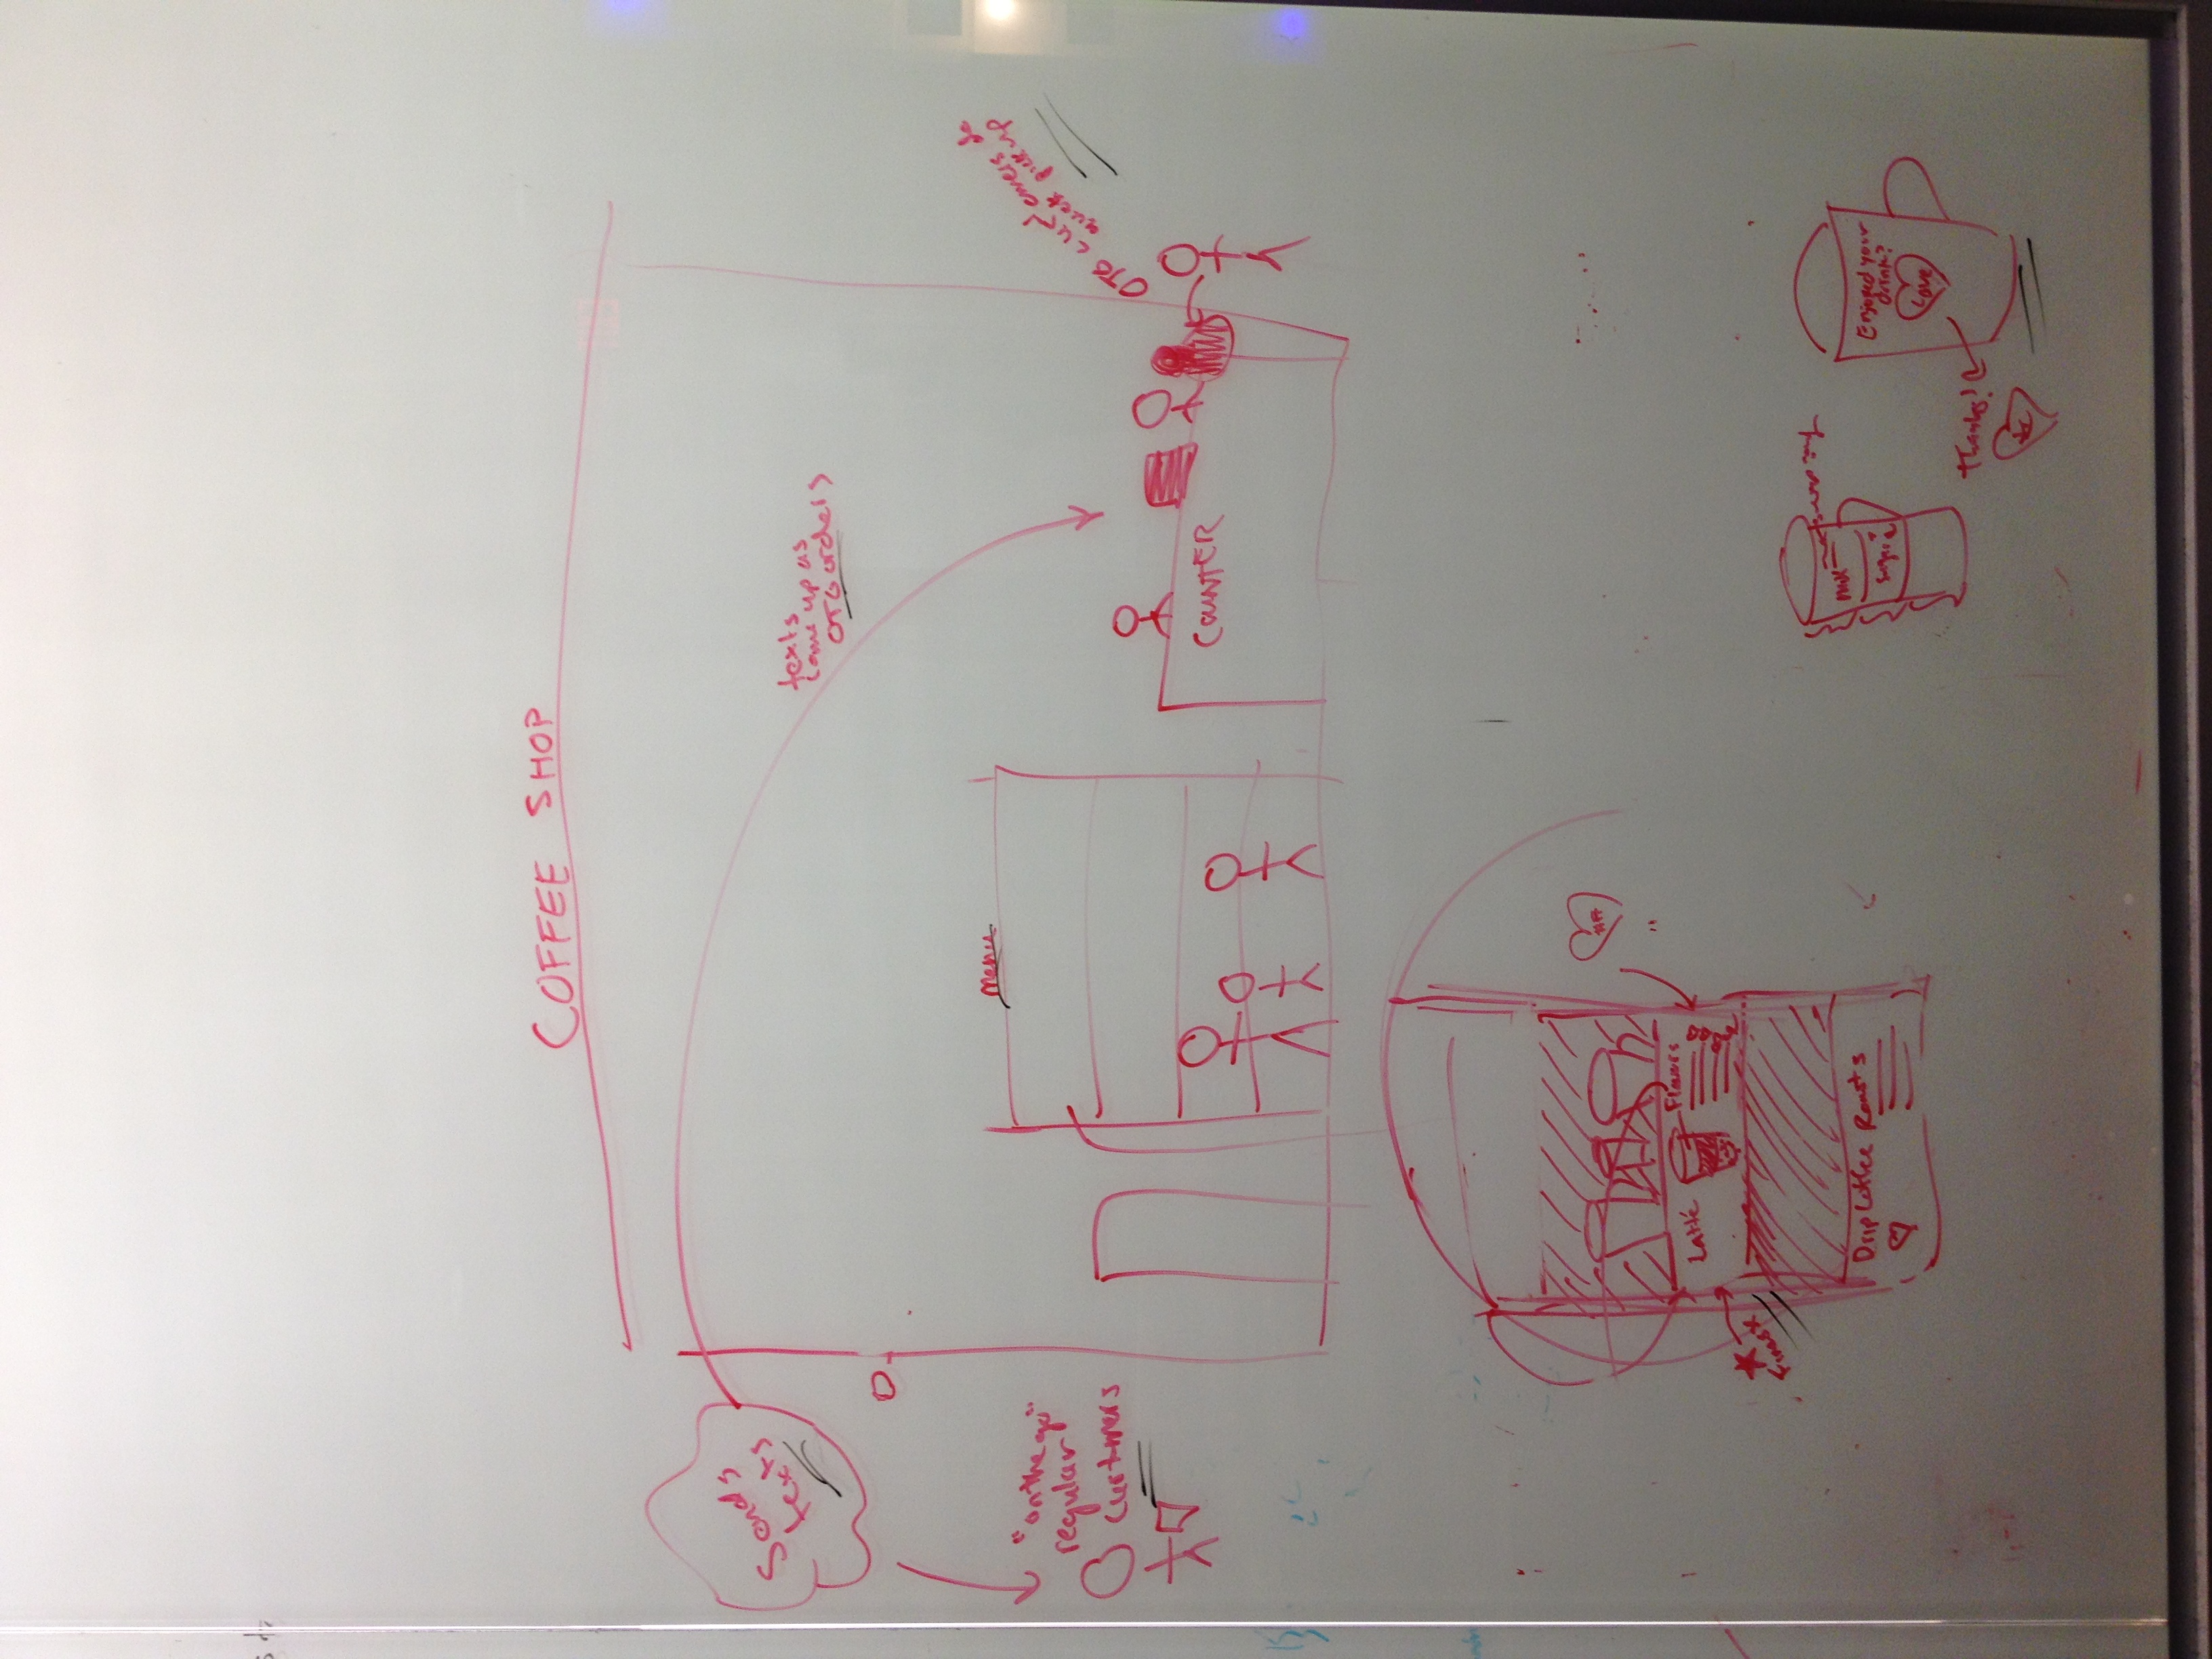 COFFEE SHOP
Sends
texts
texts
come up as
OTG orders
"on the go"
regular
customers
menu
OTG customers do
quick pick up
COUNTER
Latté
Flavors
Finest
Drip Coffee Roasts
milk
sugar
Enjoyed your
drink?
Love
Thanks!